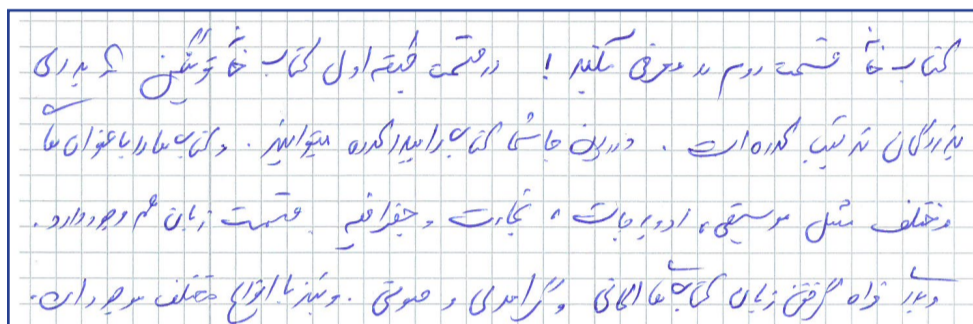 کتاب خانه قسمت دوم را معرفی میکنید! در قسمت طبقه اول کتاب خانه برای
بزرگان ترتیب کرده است. در این جا شما کتاب را پیدا کرده میتوانید. و کتاب ها را با عنوان ها
مختلف مثل موسیقی، ادویه جات، تجارت و جغرافیه قسمت زبان هم وجود دارد.
و برای فراه گرفتن زبان کتاب ها المانی و گرامری و صوتی. و نیز با انواع مختلف موجود است.